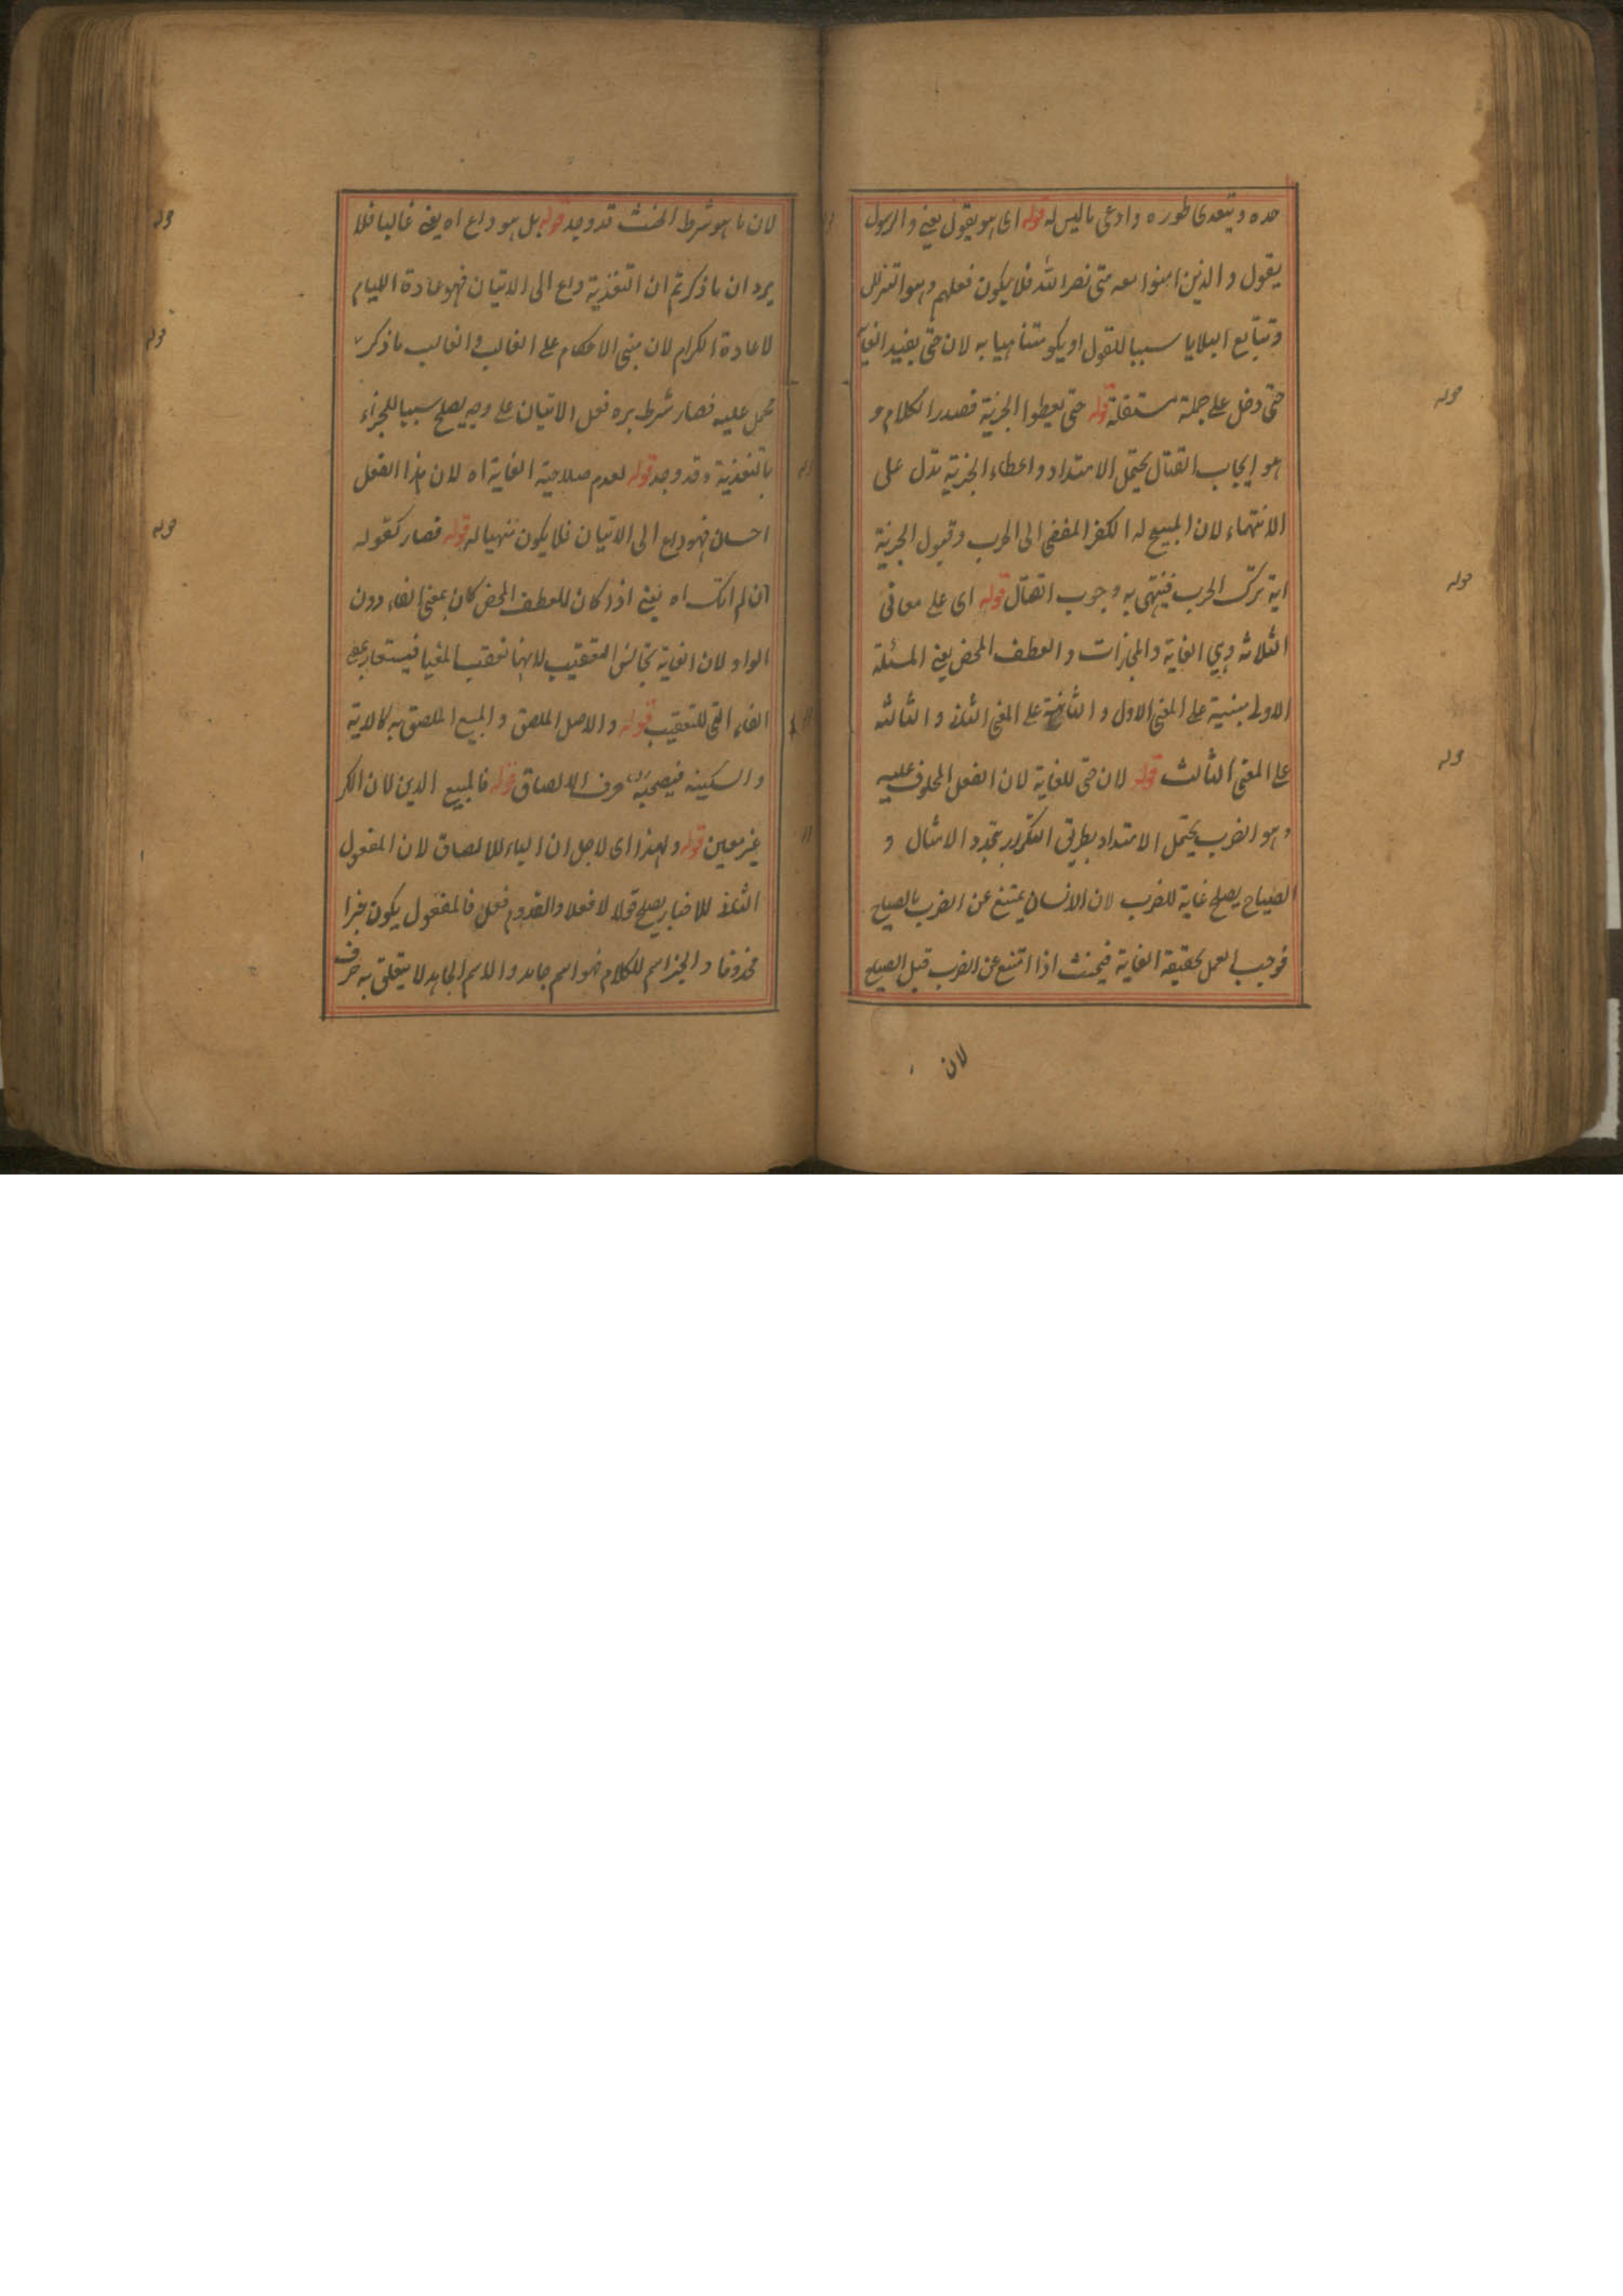 حده ويتعدى طوره وادعى ما ليس له قوله اى هو يقول يعنى والرسول
يقول والذين امنوا معه متى نصر الله فلا يكون فعلهم وهو التزلزل
وتتابع البلايا سببا للقول او يكو متناهيا به لان حتى يفيد الغاية
حتى دخل على جملة مستقلة قوله حتى يعطوا الجزية فصدر الكلام و
هو ايجاب القتال يحتمل الامتداد واعطاء الجزية تدل على
الانتهاء لان المبيح له الكفر المفضى الى الحرب وقبول الجزية
اية ترك الحرب فينتهى به وجوب القتال قوله اى على معانى
الثلاثة وهي الغاية والمجازات والعطف المحض يعنى المسئلة
الاولى مبنية على المعنى الاول والثانية على المعنى الثانى والثالثة
على المعنى الثالث قوله لان حتى للغاية لان الفعل المحلوف عليه
وهو الضرب يحتمل الامتداد بطريق التكرر بتجدد الامثال و
الصياح يصلح غاية للضرب لان الانسان يمتنع عن الضرب بالصياح
فوجب العمل بحقيقة الغاية فيحنث اذا امتنع عن الضرب قبل الصياح
لان
لان ما هو شرط الحنث قد وجد قوله بل هو داع اه يعنى غالبا فلا
يرد ان ما ذكرتم ان التغذية داع الى الاتيان فهو عادة الليام
لا عادة الكرام لان مبنى الاحكام على الغالب والغالب ما ذكر
حمل عليه فصار شرط بره فعل الاتيان على وجه يصلح سببا للجزاء
بالتغذية وقد وجد قوله لعدم صلاحية الغاية اه لان هذا الفعل
احسان فهو داع الى الاتيان فلا يكون منهيا له قوله فصار كقوله
ان لم اتك اه يعنى اذا كان للعطف المحض كان بمعنى الفاء دون
الواو لان الغاية تجانس التعقيب لانها تعقب المغيا فيستعار بمعنى
الفاء التى للتعقيب قوله والاصل الملصق والمبيع الملصق به كالالة
والسكينة فيصحبه حرف الالصاق قوله فالمبيع الدين لان الكر
غير معين قوله ولهذا اى لاجل ان الباء للالصاق لان المفعول
الثانى للاخبار يصلح قولا لا فعلا والقدوم فعل فالمفعول يكون خبرا
محذوفا والخبر اسم للكلام فهو اسم جامد والاسم الجامد لا يتعلق به حرف